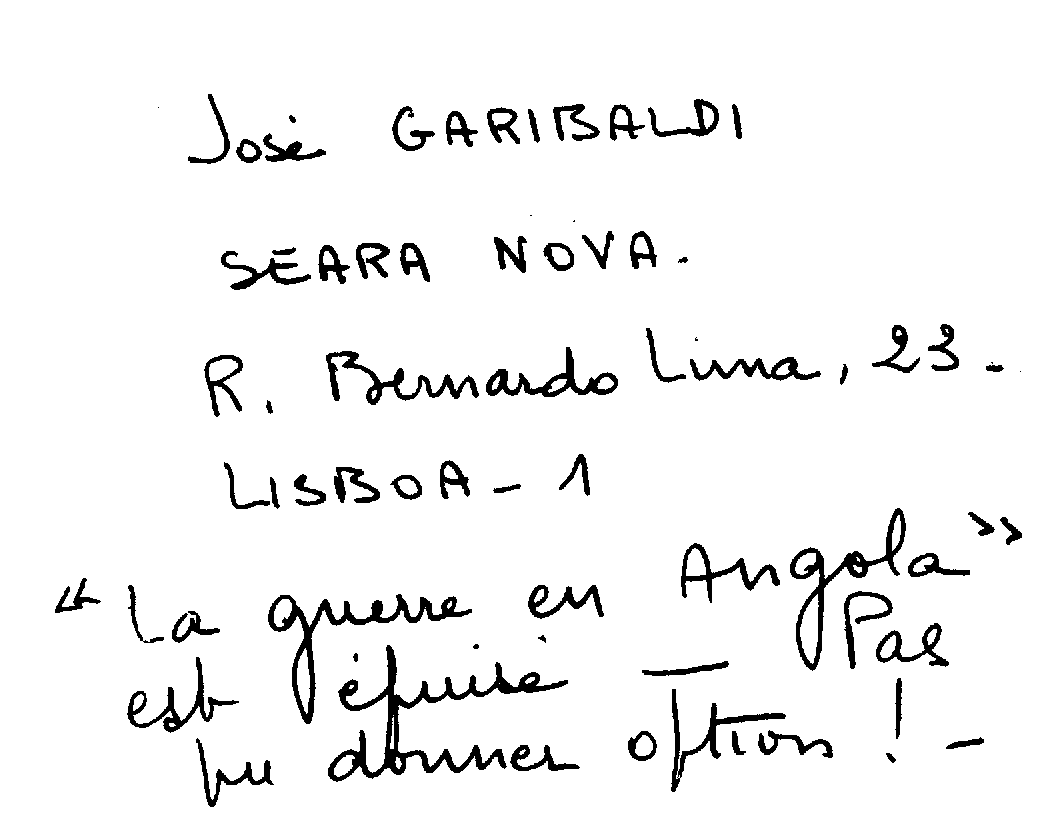 José GARIBALDI
SEARA NOVA.
R. Bernardo Lima, 23.
LISBOA - 1
"La guerre en Angola"
est épuisé — Pas
pu donner option ! -